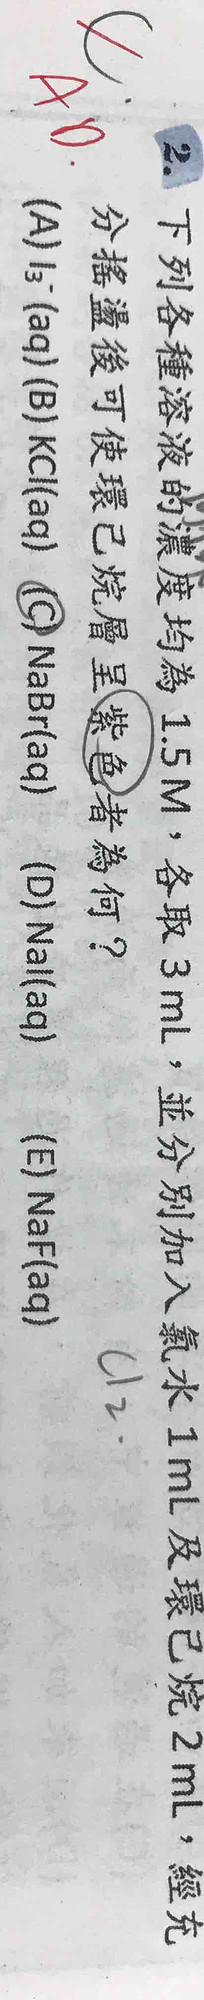 2. 下列各種溶液的濃度均為 1.5 M，各取 3 mL，並分別加入氯水 1 mL 及環己烷 2 mL，經充
分搖盪後可使環己烷層呈紫色者為何？
Cl2.
(A) I3⁻ (aq) (B) KCl(aq) (C) NaBr(aq) (D) NaI(aq) (E) NaF(aq)
C.
AD.